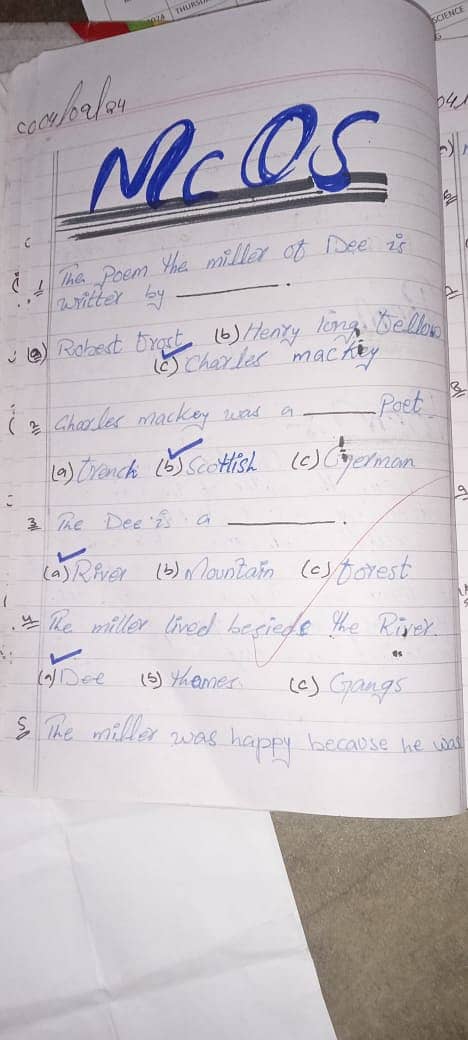 2024
THURSD
SCIENCE
MCQS
1 The Poem the miller of Dee is
writter by ________.
(a) Robest Frost (b) Henry long. Fellow
(c) Charles mackey
2 Charles mackey was a ________ Poet
(a) French (b) Scottish (c) German
3 The Dee is a ________.
(a) River (b) Mountain (c) Forest
4 The miller lived besiede the River.
(a) Dee (b) thames. (c) Gangs
5 The miller was happy because he was